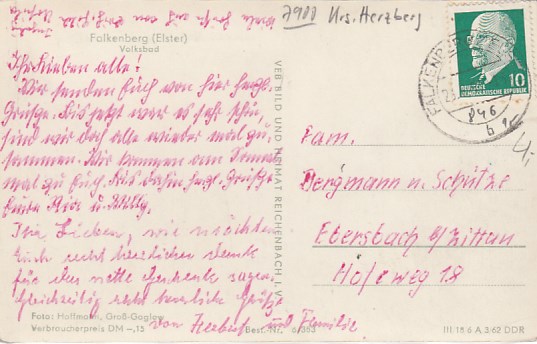 7900 Krs. Herzberg
Viele Grüße auf von
Falkenberg (Elster)
Volksbad
Ihr Lieben alle!
Wir senden Euch von hier herzl.
Grüße. Bis jetzt war es sehr schön,
sind wir doch alle wieder mal zu-
sammen. Wir kommen am Sonna
mal zu Euch. Bis dahin herzl. Grüße
Eure u. Willy.
Ihr Lieben, wir möchten
Euch recht herzlichen Dank
für das nette Geschenk sagen.
Gleichzeitig recht herzliche Grüße
von Herbert und Familie
Foto: Hoffmann, Groß-Gaglow
Verbraucherpreis DM -,15
Best.-Nr. 6/363
VEB BILD UND HEIMAT REICHENBACH I. V.
FALKENBERG
DEUTSCHE
DEMOKRATISCHE REPUBLIK
10
Fam.
Bergmann u. Schütze
Ebersbach b/Zittau
Hofeweg 18
III 18 6 A 3/62 DDR